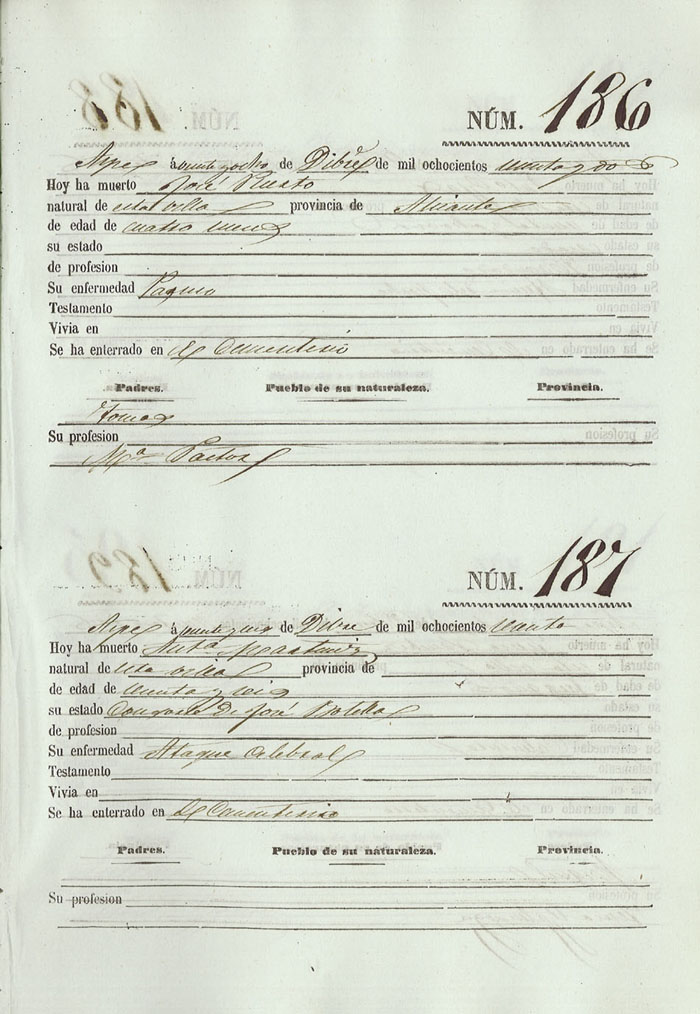 NÚM. 186
Aspe á de Dibre de mil ochocientos
Hoy ha muerto José
natural de esta villa provincia de Alicante
de edad de cuatro meses
su estado
de profesion
Su enfermedad
Testamento
Vivia en
Se ha enterrado en el Cementerio
Padres. Pueblo de su naturaleza. Provincia.
Tomas
Su profesion
Mª Pastor
NÚM. 187
Aspe á de Dibre de mil ochocientos
Hoy ha muerto Martinez
natural de esta villa provincia de
de edad de
su estado Consorte de José Botella
de profesion
Su enfermedad Ataque celebral
Testamento
Vivia en
Se ha enterrado en el Cementerio
Padres. Pueblo de su naturaleza. Provincia.
Su profesion